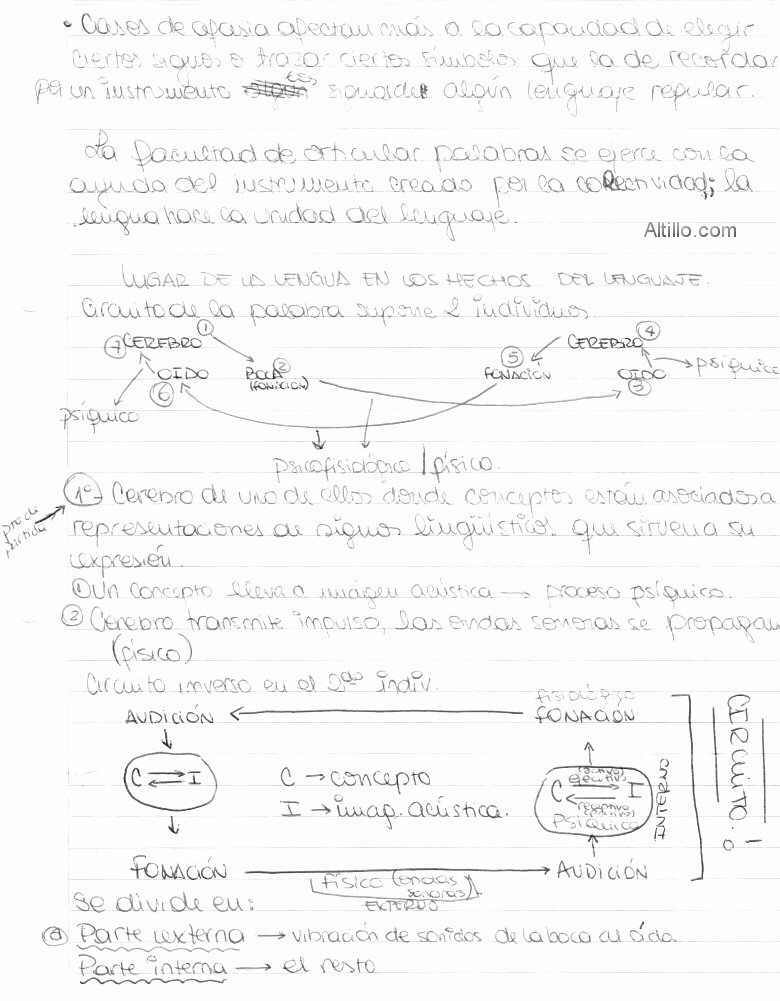 • Casos de afasia afectan más a la capacidad de elegir
ciertos signos o trazar ciertos símbolos que la de recordar
por un instrumento los signos de algún lenguaje regular.
La facultad de articular palabras se ejerce con la
ayuda del instrumento creado por la colectividad; la
lengua hace la unidad del lenguaje.
Altillo.com
LUGAR DE LA LENGUA EN LOS HECHOS DEL LENGUAJE.
Circuito de la palabra supone 2 individuos
7 CEREBRO 1 5 CEREBRO 4
OIDO BOCA 2 FONACIÓN OIDO psíquico
6 (FONACION) 3
psíquico
psicofisiológico / físico.
1º- Cerebro de uno de ellos donde conceptos están asociados a
representaciones de signos lingüísticos. que sirven a su
expresión.
① Un concepto lleva a imágen acústica → proceso psíquico.
② Cerebro transmite impulso, las ondas sonoras se propagan
(físico)
Circuito inverso en el 2do indiv.
fisiológico
AUDICIÓN ← FONACIÓN
C ⇄ I C → concepto C ⇄ I
I → imag. acústica.
(activo) ejecutivo
receptivo (pasivo)
Psíquico
INTERNO
CIRCUITO.
FONACIÓN → AUDICIÓN
físico (ondas sonoras)
EXTERNO
se divide en:
ⓐ Parte externa → vibración de sonidos de la boca al oído.
Parte interna → el resto